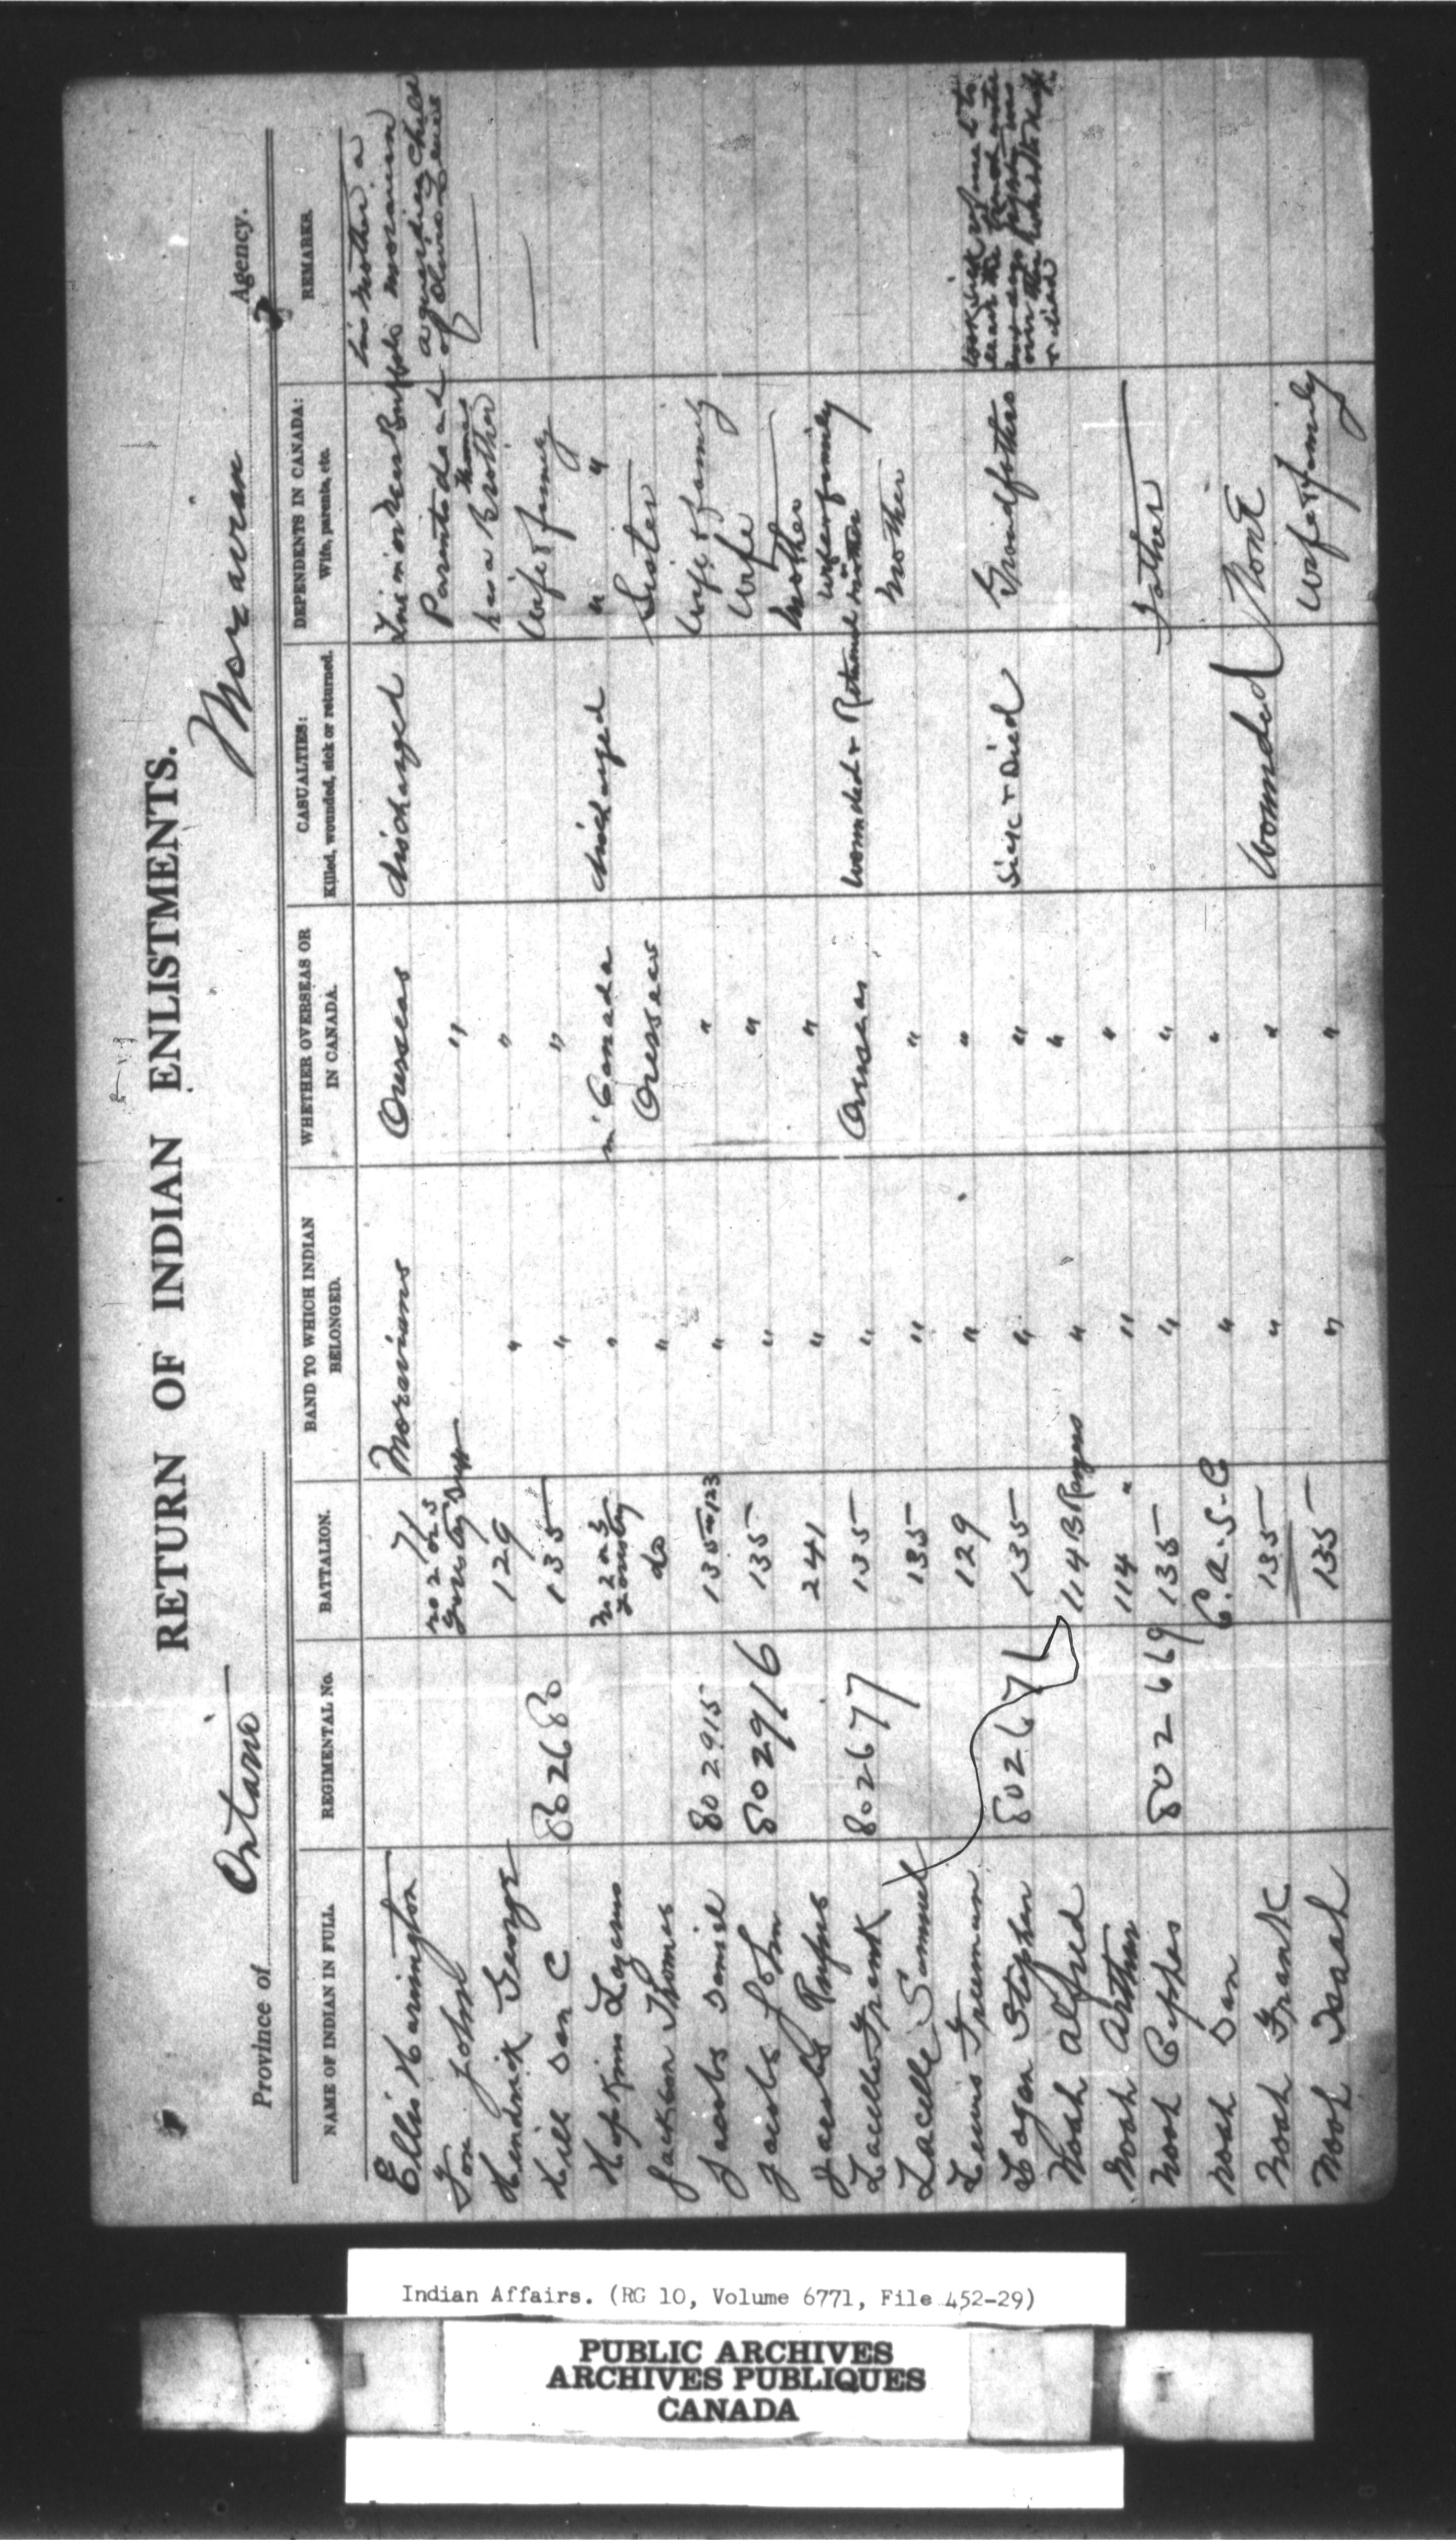 RETURN OF INDIAN ENLISTMENTS.
Province of Ontario Moravian Agency.
NAME OF INDIAN IN FULL. REGIMENTAL No. BATTALION. BAND TO WHICH INDIAN BELONGED. WHETHER OVERSEAS OR IN CANADA. CASUALTIES: Killed, wounded, sick or returned. DEPENDENTS IN CANADA: Wife, parents, etc. REMARKS.
Ellis Harington 71 Moravians Overseas discharged Lives in or near Buffalo his mother a moravian
Fox John no 2 or 3 Forestry " Parents dead a guardian Chas
has a Brother Thomas of
Hendrick George 129 " "
Hill Dan C 802680 135 " " Wife & family
Hopkins Lazarus no 2 or 3 forestry " in Canada discharged " "
Jackson Thomas do " Overseas Sister
Jacobs Daniel 802915 135 - 123 " " Wife & family
Jacobs John 802916 135 " " Wife
Jacobs Rufus 241 " " Mother
Lacelle Frank 802677 135 " Overseas wounded & Returned wife & family
Lacelle Samuel 135 " " Mother
Lewis Freeman 129 " "
Logan Stephen 802676 135 " " Sick & Died Grandfather took sick & died
Noah Alfred 114 B Rangers " "
Noah Arthur 114 " " "
Noah Cephas 802669 135 " " Father
Noah Dan C.A.S.C " "
Noah Frank 135 " " Wounded None
Noah Isaah 135 " " Wife & family
Indian Affairs. (RG 10, Volume 6771, File 452-29)
PUBLIC ARCHIVES
ARCHIVES PUBLIQUES
CANADA